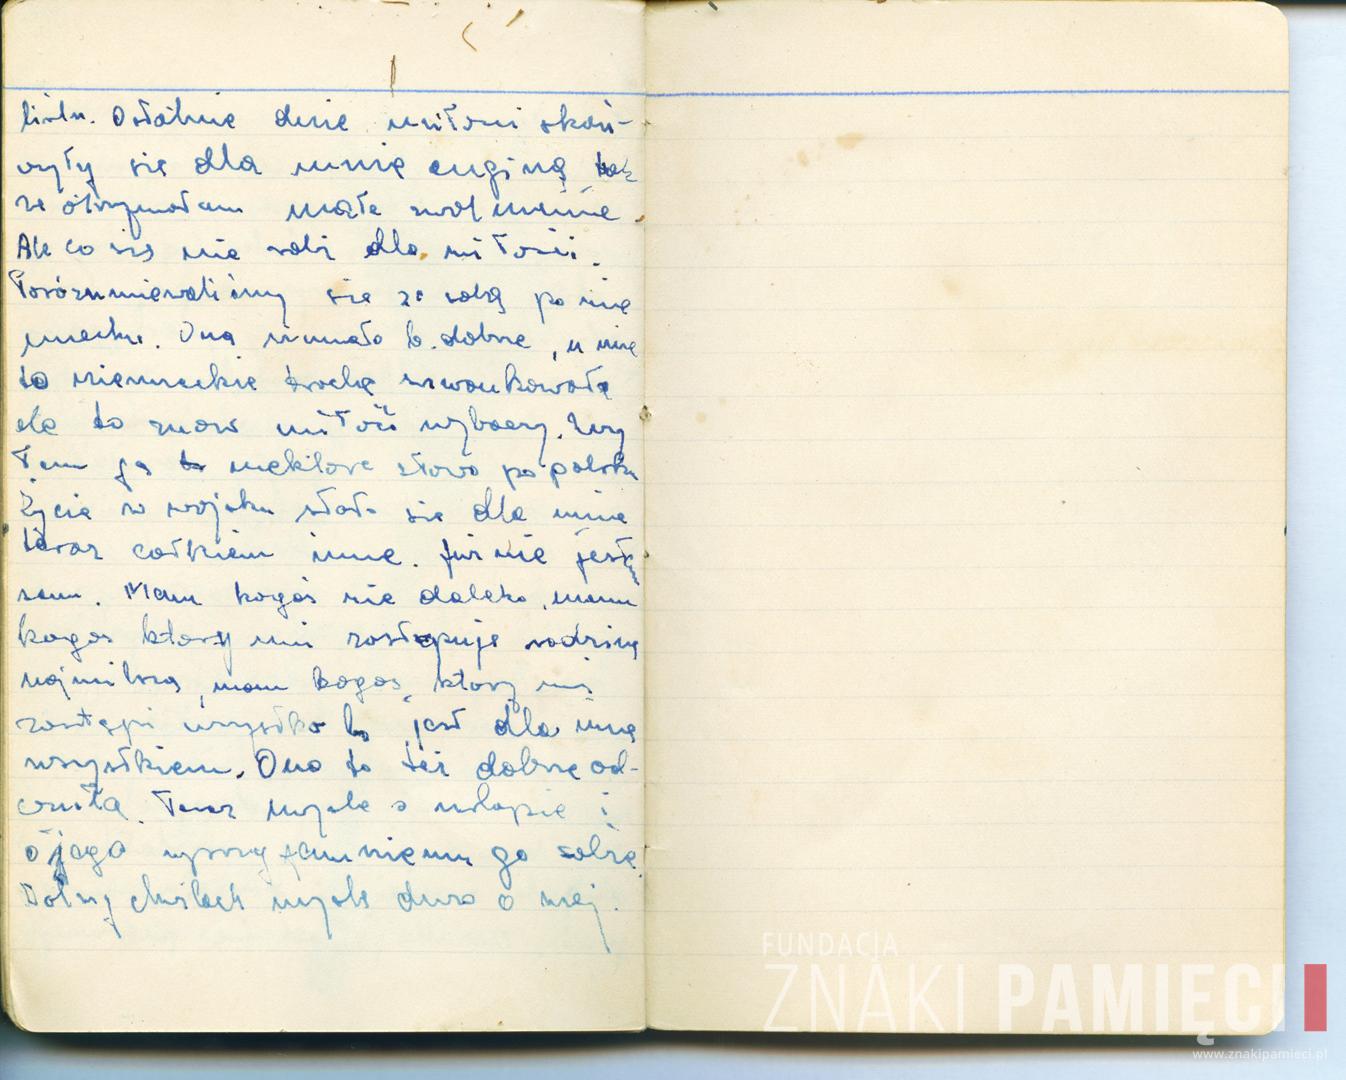 listu. Ostatnie dnie miłosci skoń-
czyły się dla mnie anginą tak
że otrzymałam małe zwolnienie.
Ale co się nie robi dla miłości.
Porozumiewaliśmy się ze sobą po nie
miecku. Ona umiała b. dobrze, u mnie
to niemieckie trochę szwankowało
ale to znow miłość wybaczy. Uczy
łem ją to niektóre słowa po polsku
Życie w wojsku stało się dla mnie
teraz całkiem inne. Już nie jestem
sam. Mam kogoś nie daleko, mam
kogos ktory mi zastępuje rodzinę
najmilszą, mam kogos, ktory mi
zastąpi wszystko bo jest dla mnie
wszystkiem. Ona to też dobrze od-
czuła. Teraz myśle o
o jego go sobie
chwilach myśle dużo o niej.
FUNDACJA
ZNAKI PAMIĘCI
www.znakipamieci.pl